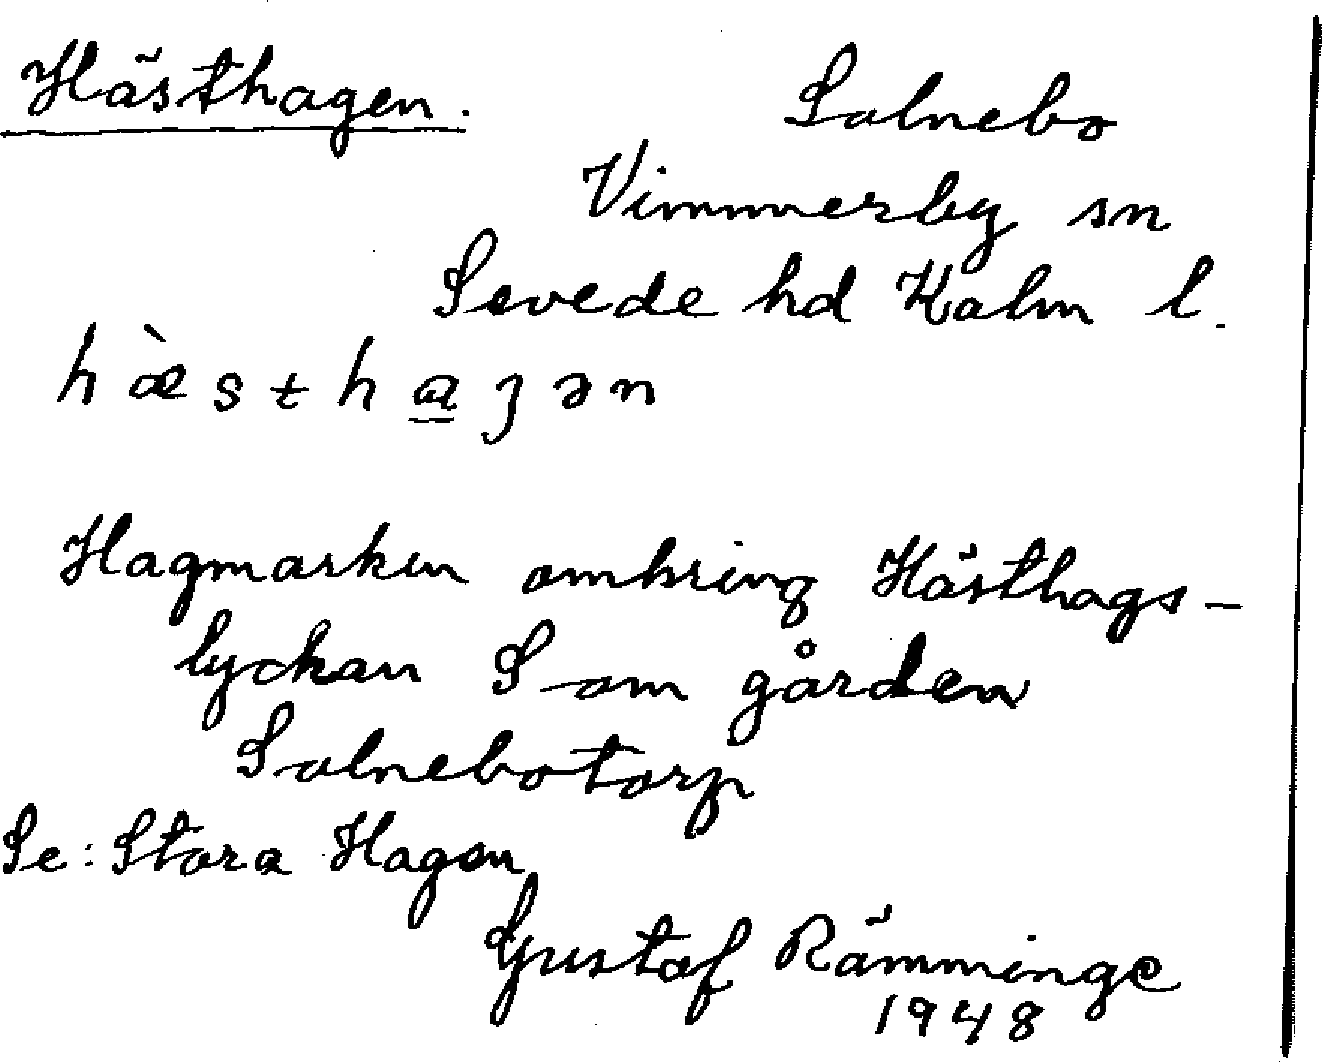 Hästhagen.
Salnebo
Vimmerby sn
Sevede hd Kalm l.
hæ̀sthaʒən
Hagmarken omkring Hästhags-
lyckan S om gården
Salnebotorp
Se: Stora Hagen
Gustaf Rämminge
1948